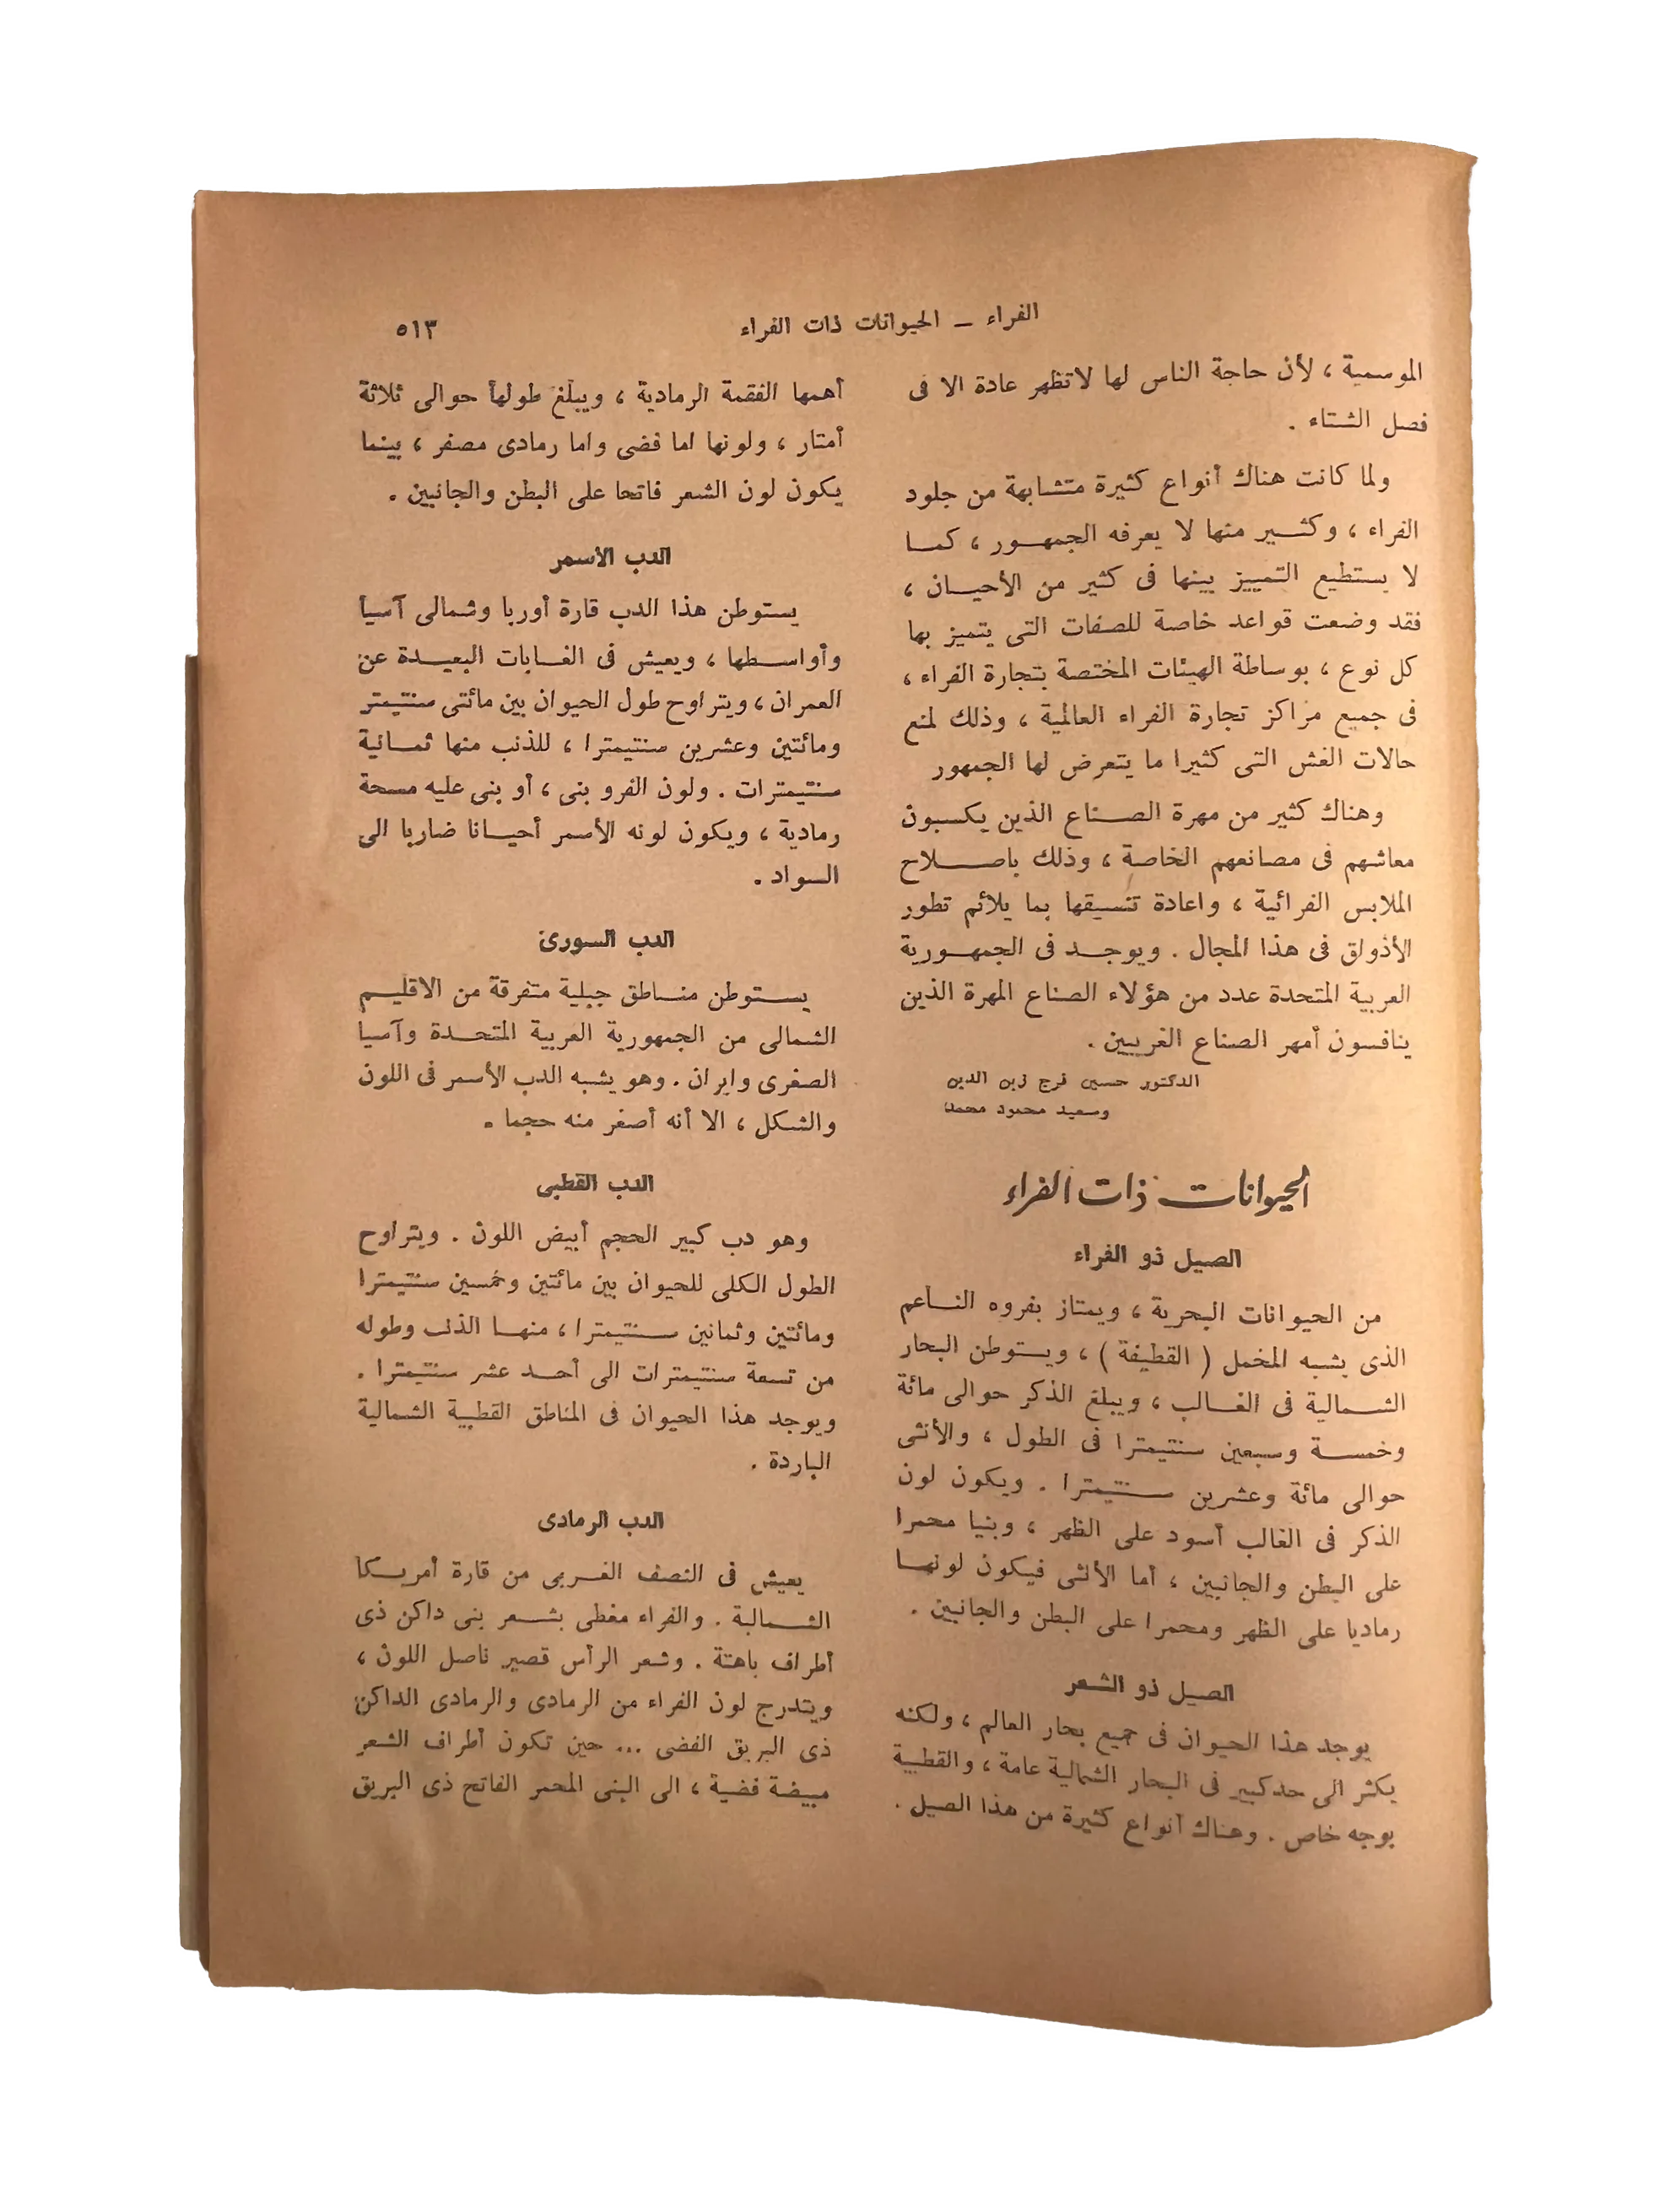 الفراء – الحيوانات ذات الفراء
٥١٣
الموسمية ، لأن حاجة الناس لها لاتظهر عادة الا فى
فصل الشتاء .
ولما كانت هناك أنواع كثيرة متشابهة من جلود
الفراء ، وكثير منها لا يعرفه الجمهور ، كما
لا يستطيع التمييز بينها فى كثير من الأحيان ،
فقد وضعت قواعد خاصة للصفات التى يتميز بها
كل نوع ، بوساطة الهيئات المختصة بتجارة الفراء ،
فى جميع مراكز تجارة الفراء العالمية ، وذلك لمنع
حالات الغش التى كثيرا ما يتعرض لها الجمهور
وهناك كثير من مهرة الصناع الذين يكسبون
معاشهم فى مصانعهم الخاصة ، وذلك باصلاح
الملابس الفرائية ، واعادة تنسيقها بما يلائم تطور
الأذواق فى هذا المجال . ويوجد فى الجمهورية
العربية المتحدة عدد من هؤلاء الصناع المهرة الذين
ينافسون أمهر الصناع الغربيين .
الدكتور حسين فرج زين الدين
وسعيد محمود محمد
الحيوانات ذات الفراء
الصيل ذو الفراء
من الحيوانات البحرية ، ويمتاز بفروه الناعم
الذى يشبه المخمل ( القطيفة ) ، ويستوطن البحار
الشمالية فى الغالب ، ويبلغ الذكر حوالى مائة
وخمسة وسبعين سنتيمترا فى الطول ، والأنثى
حوالى مائة وعشرين سنتيمترا . ويكون لون
الذكر فى الغالب أسود على الظهر ، وبنيا محمرا
على البطن والجانبين ، أما الأنثى فيكون لونها
رماديا على الظهر ومحمرا على البطن والجانبين .
الصيل ذو الشعر
يوجد هذا الحيوان فى جميع بحار العالم ، ولكنه
يكثر الى حد كبير فى البحار الشمالية عامة ، والقطبية
بوجه خاص . وهناك أنواع كثيرة من هذا الصيل .
أهمها الفقمة الرمادية ، ويبلغ طولها حوالى ثلاثة
أمتار ، ولونها اما فضى واما رمادى مصفر ، بينما
يكون لون الشعر فاتحا على البطن والجانبين .
الدب الأسمر
يستوطن هذا الدب قارة أوربا وشمالى آسيا
وأواسطها ، ويعيش فى الغابات البعيدة عن
العمران ، ويتراوح طول الحيوان بين مائتى سنتيمتر
ومائتين وعشرين سنتيمترا ، للذنب منها ثمانية
سنتيمترات . ولون الفرو بنى ، أو بنى عليه مسحة
رمادية ، ويكون لونه الأسمر أحيانا ضاربا الى
السواد .
الدب السورى
يستوطن مناطق جبلية متفرقة من الاقليم
الشمالى من الجمهورية العربية المتحدة وآسيا
الصغرى وايران . وهو يشبه الدب الأسمر فى اللون
والشكل ، الا أنه أصغر منه حجما .
الدب القطبى
وهو دب كبير الحجم أبيض اللون . ويتراوح
الطول الكلى للحيوان بين مائتين وخمسين سنتيمترا
ومائتين وثمانين سنتيمترا ، منها الذنب وطوله
من تسعة سنتيمترات الى أحد عشر سنتيمترا .
ويوجد هذا الحيوان فى المناطق القطبية الشمالية
الباردة .
الدب الرمادى
يعيش فى النصف الغربى من قارة أمريكا
الشمالية . والفراء مغطى بشعر بنى داكن ذى
أطراف باهتة . وشعر الرأس قصير ناصل اللون ،
ويتدرج لون الفراء من الرمادى والرمادى الداكن
ذى البريق الفضى ... حين تكون أطراف الشعر
مبيضة فضية ، الى البنى المحمر الفاتح ذى البريق